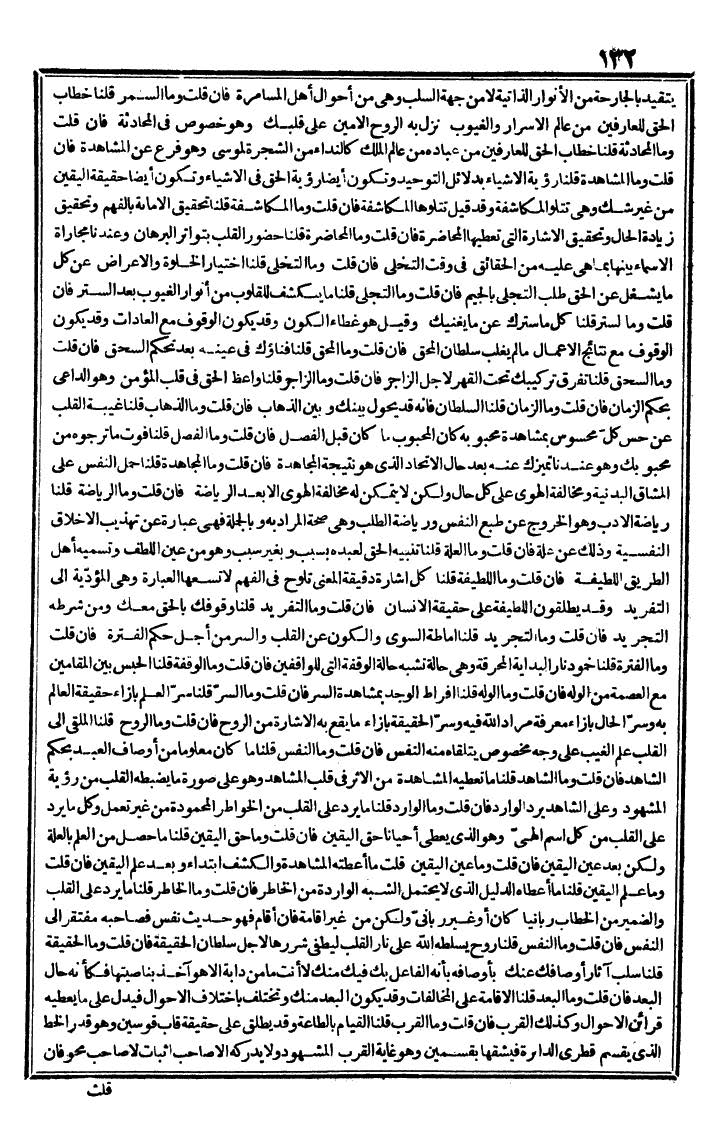 ١٣٢
يتقيد بالجارحة من الأنوار الذاتية لا من جهة السلب وهى من أحوال أهل المسامرة فان قلت وما السمر قلنا خطاب
الحق للعارفين من عالم الاسرار والغيوب نزل به الروح الامين على قلبك وهو خصوص فى المحادثة فان قلت
وما المحادثة قلنا خطاب الحق للعارفين من عباده من عالم الملك كالنداء من الشجرة لموسى وهو فرع عن المشاهدة فان
قلت وما المشاهدة قلنا رؤية الاشياء بدلائل التوحيد وتكون أيضا رؤية الحق فى الاشياء وتكون أيضا حقيقة اليقين
من غير شك وهى تتلو المكاشفة وقد قيل تتلوها المكاشفة فان قلت وما المكاشفة قلنا تحقيق الامانة بالفهم وتحقيق
زيادة الحال وتحقيق الاشارة التى تعطيها المحاضرة فان قلت وما المحاضرة قلنا حضور القلب بتواتر البرهان وعندنا مجاراة
الاسماء بينها بما هى عليه من الحقائق فى وقت التخلى فان قلت وما التخلى قلنا اختيار الخلوة والاعراض عن كل
ما يشغل عن الحق طلب التجلى بالجيم فان قلت وما التجلى قلنا ما ينكشف للقلوب من أنوار الغيوب بعد الستر فان
قلت وما لستر قلنا كل ما سترك عن ما يغنيك وقيل هو غطاء الكون وقد يكون الوقوف مع العادات وقد يكون
الوقوف مع نتائج الاعمال ما لم يغلب سلطان المحق فان قلت وما المحق قلنا فناؤك فى عينه بعد تحكم السحق فان قلت
وما السحق قلنا تفرق تركيبك تحت القهر لاجل الزاجر فان قلت وما الزاجر قلنا واعظ الحق فى قلب المؤمن وهو الداعى
بحكم الزمان فان قلت وما الزمان قلنا السلطان فانه قد يحول بينك وبين الذهاب فان قلت وما الذهاب قلنا غيبة القلب
عن حس كل محسوس بمشاهدة محبوبه كان المحبوب ما كان قبل الفصل فان قلت وما الفصل قلنا فوت ما ترجوه من
محبوبك وهو عندنا تميزك عنه بعد حال الاتحاد الذى هو نتيجة المجاهدة فان قلت وما المجاهدة قلنا حمل النفس على
المشاق البدنية ومخالفة الهوى على كل حال ولكن لا يتمكن له مخالفة الهوى الا بعد الرياضة فان قلت وما الرياضة قلنا
رياضة الادب وهو الخروج عن طبع النفس ورياضة الطلب وهى صحة المراد به وبالجلة فهى عبارة عن تهذيب الاخلاق
النفسية وذلك عن علة فان قلت وما العلة قلنا تنبيه الحق لعبده بسبب وبغير سبب وهو من عين اللطف وتسميه أهل
الطريق اللطيفة فان قلت وما اللطيفة قلنا كل اشارة دقيقة المعنى تلوح فى الفهم لا تسعها العبارة وهى المؤدّية الى
التفريد وقد يطلقون اللطيفة على حقيقة الانسان فان قلت وما التفريد قلنا وقوفك بالحق معك ومن شرطه
التجريد فان قلت وما التجريد قلنا اماطة السوى والكون عن القلب والسر من أجل حكم الفترة فان قلت
وما الفترة قلنا خمود نار البداية المحرقة وهى حالة تشبه حالة الوقفة التى للواقفين فان قلت وما الوقفة قلنا الحبس بين المقامين
مع العصمة من الوله فان قلت وما الوله قلنا افراط الوجد بمشاهدة السر فان قلت وما السرّ قلنا سرّ العلم بازاء حقيقة العالم
به وسرّ الحال بازاء معرفة مراد الله فيه وسرّ الحقيقة بازاء ما يقع به الاشارة من الروح فان قلت وما الروح قلنا الملقى الى
القلب علم الغيب على وجه مخصوص يتلقاه منه النفس فان قلت وما النفس قلنا ما كان معلوما من أوصاف العبد بحكم
الشاهد فان قلت وما الشاهد قلنا ما تعطيه المشاهدة من الاثر فى قلب المشاهد وهو على صورة ما يضبطه القلب من رؤية
المشهود وعلى الشاهد يرد الوارد فان قلت وما الوارد قلنا ما يرد على القلب من الخواطر المحمودة من غير تعمل وكل ما يرد
على القلب من كل اسم الهىّ وهو الذى يعطى أحيانا حق اليقين فان قلت وما حق اليقين قلنا ما حصل من العلم بالعلة
ولكن بعد عين اليقين فان قلت وما عين اليقين قلت ما أعطته المشاهدة والكشف ابتداء وبعد علم اليقين فان قلت
وما علم اليقين قلنا ما أعطاه الدليل الذى لا يحتمل الشبه الواردة من الخاطر فان قلت وما الخاطر قلنا ما يرد على القلب
والضمير من الخطاب ربانيا كان أو غير ربانىّ ولكن من غير اقامة فان أقام فهو حديث نفس فصاحبه مفتقر الى
النفس فان قلت وما النفس قلنا روح يسلطه الله على نار القلب ليطفئ شررها لاجل سلطان الحقيقة فان قلت وما الحقيقة
قلنا سلب آثار أوصافك عنك بأوصافه بأنه الفاعل بك فيك منك لا أنت ما من دابة الا هو آخذ بناصيتها فكأنه حال
البعد فان قلت وما البعد قلنا الاقامة على المخالفات وقد يكون البعد منك وتختلف باختلاف الاحوال فيدل على ما يعطيه
قرائن الاحوال وكذلك القرب فان قلت وما القرب قلنا القيام بالطاعة وقد يطلق على حقيقة قاب قوسين وهو قدر الخط
الذى يقسم قطرى الدائرة فيشقها بقسمين وهو غاية القرب المشهود ولا يدركه الا صاحب اثبات لا صاحب محو فان
قلت